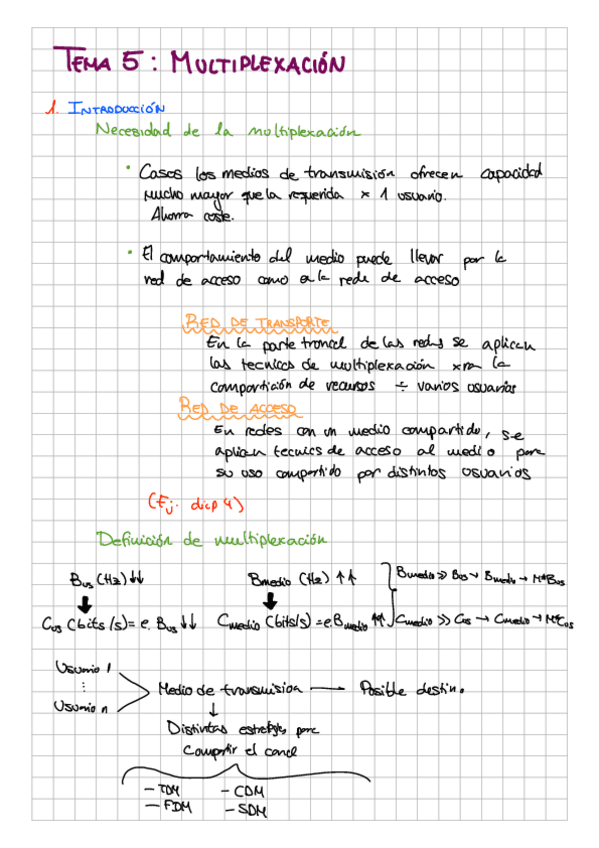 TEMA 5: MULTIPLEXACIÓN
1. INTRODUCCIÓN
Necesidad de la multiplexación
• Casos los medios de transmisión ofrecen capacidad
mucho mayor que la requerida x 1 usuario.
Ahorra coste.
• El comportamiento del medio puede llevar por la
red de acceso como a la rede de acceso
RED DE TRANSPORTE
En la parte troncal de las redes se aplican
las tecnicas de multiplexación xra la
compartición de recursos ÷ varios usuarios
RED DE ACCESO
En redes con un medio compartido, se
aplican tecnics de acceso al medio para
su uso compartido por distintos usuarios
(Ej. dicp 4)
Definición de multiplexación
Bus (Hz) ↓↓ Bmedio (Hz) ↑↑ Bmedio >> Bus → Bmedio → M*Bus
Cus (bits/s) = e. Bus ↓↓ Cmedio (bits/s) = e. Bmedio ↑↑ Cmedio >> Cus → Cmedio → M*Cus
Usuario 1
⋮
Medio de transmision — Posible destino
Usuario n
↓
Distintas estrategs para
Compartir el canal
- TDM - CDM
- FDM - SDM